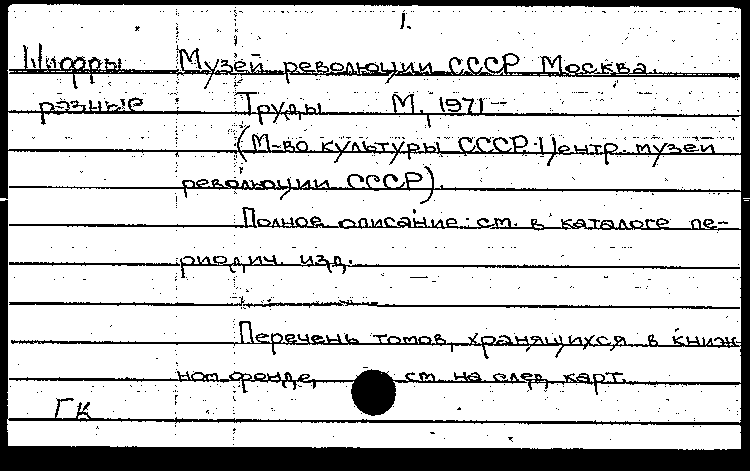 1.
Шифры Музей революции СССР Москва.
разные Труды М., 1971-
(М-во культуры СССР. Центр. музей
революции СССР).
Полное описание: см. в каталоге пе-
риодич. изд.
Перечень томов, хранящихся в книж
ном фонде, см. на след. карт.
ГК